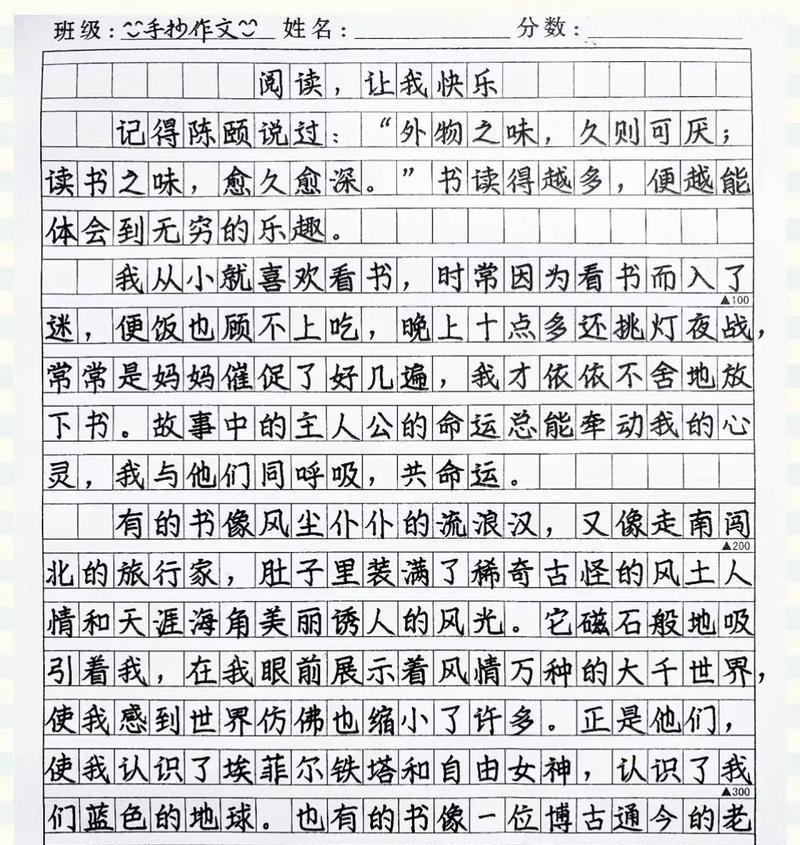 班级：手抄作文 姓名： 分数：
阅读，让我快乐
记得陈颐说过：“外物之味，久则可厌；
读书之味，愈久愈深。”书读得越多，便越能
体会到无穷的乐趣。
我从小就喜欢看书，时常因为看书而入了
▲100
迷，便饭也顾不上吃，晚上十点多还挑灯夜战，
常常是妈妈催促了好几遍，我才依依不舍地放
下书。故事中的主人公的命运总能牵动我的心
灵，我与他们同呼吸，共命运。
有的书像风尘仆仆的流浪汉，又像走南闯
▲200
北的旅行家，肚子里装满了稀奇古怪的风土人
情和天涯海角美丽诱人的风光。它磁石般地吸
引着我，在我眼前展示着风情万种的大千世界，
使我感到世界仿佛也缩小了许多。正是他们，
使我认识了埃菲尔铁塔和自由女神，认识了我
▲300
们蓝色的地球。也有的书像一位博古通今的老